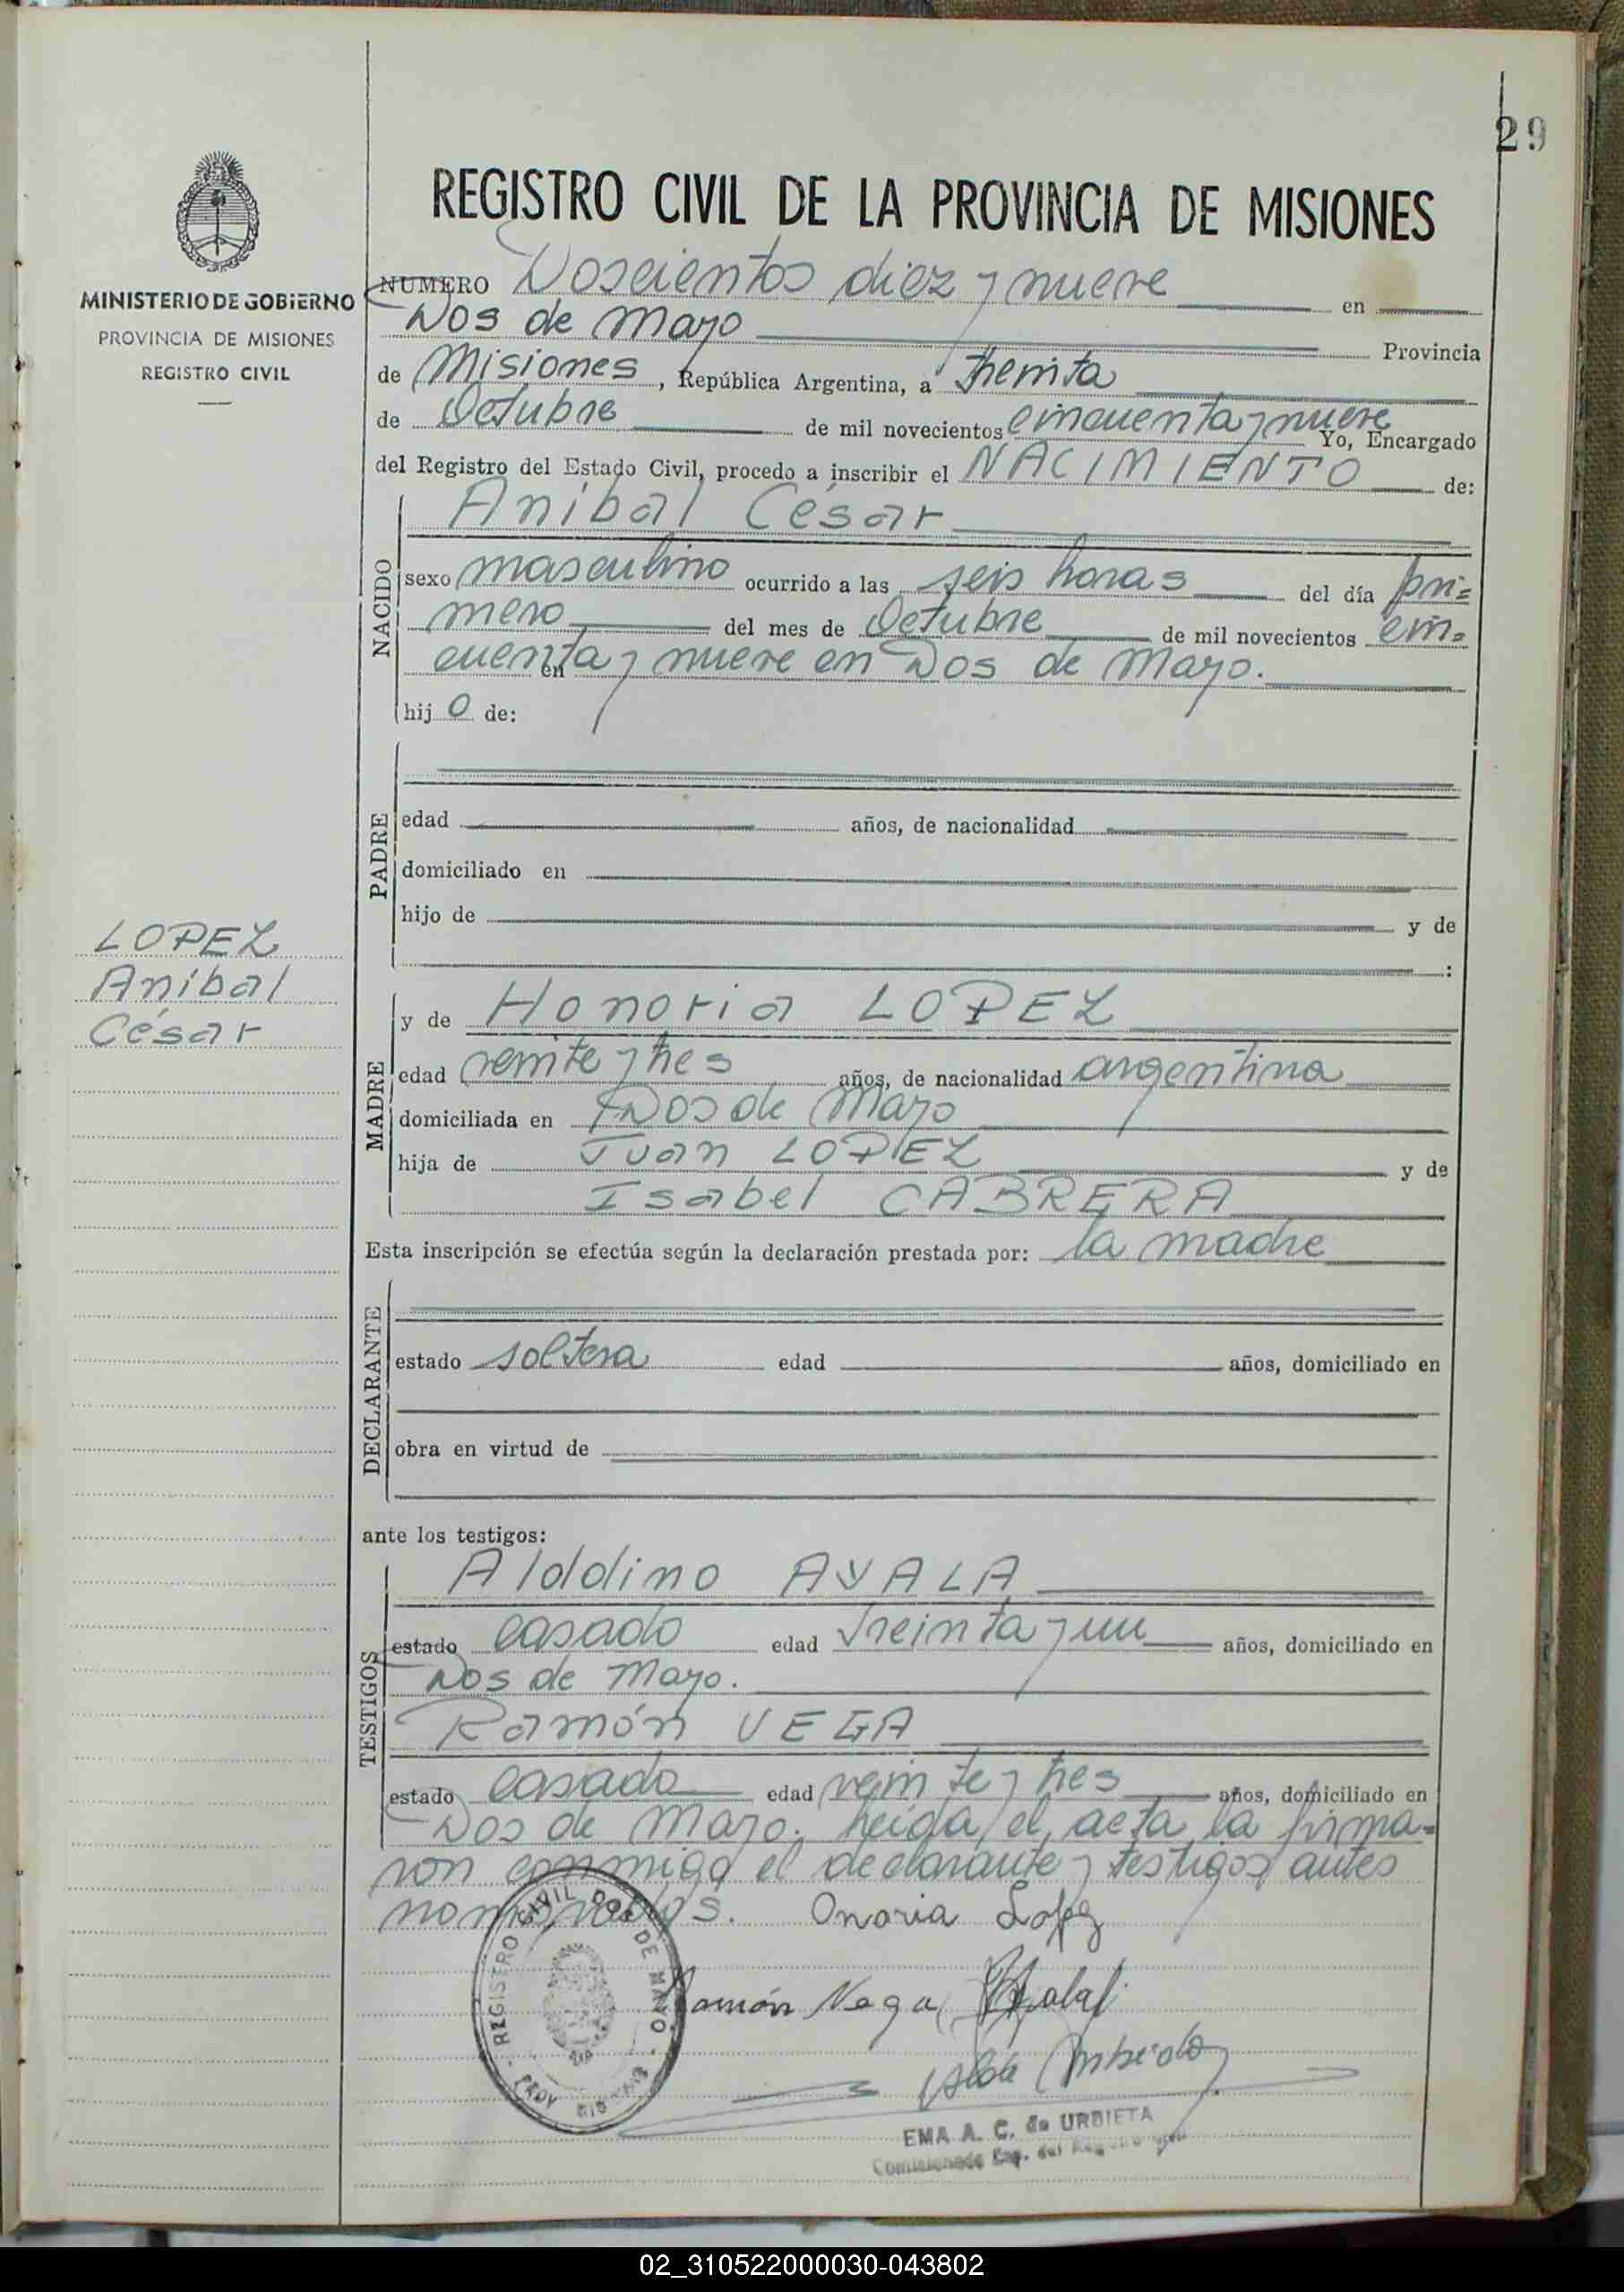 29
REGISTRO CIVIL DE LA PROVINCIA DE MISIONES
MINISTERIO DE GOBIERNO
PROVINCIA DE MISIONES
REGISTRO CIVIL
NUMERO Doscientos diez y nueve en
Dos de Mayo Provincia
de Misiones, República Argentina, a treinta
de Octubre de mil novecientos cincuenta y nueve Yo, Encargado
del Registro del Estado Civil, procedo a inscribir el NACIMIENTO de:
NACIDO
Aníbal César
sexo masculino ocurrido a las seis horas del día pri=
mero del mes de Octubre de mil novecientos cin=
cuenta y nueve en Dos de Mayo.
en
hijo de:
PADRE
edad años, de nacionalidad
domiciliado en
hijo de y de
:
LOPEZ
Aníbal
César
MADRE
y de Honoria LOPEZ
edad veinte y tres años, de nacionalidad argentina
domiciliada en Dos de Mayo
hija de Juan LOPEZ y de
Isabel CABRERA
Esta inscripción se efectúa según la declaración prestada por: la madre
DECLARANTE
estado soltera edad años, domiciliado en
obra en virtud de
ante los testigos:
TESTIGOS
Alddino AYALA
estado casado edad treinta y un años, domiciliado en
Dos de Mayo.
Ramón VEGA
estado casado edad veinte y tres años, domiciliado en
Dos de Mayo. Leída el acta la firma=
ron conmigo el declarante y testigos antes
nombrados. Onoria Lopez
Ramón Vega
REGISTRO CIVIL DOS DE MAYO
EMA A. C. de URBIETA
02_310522000030-043802